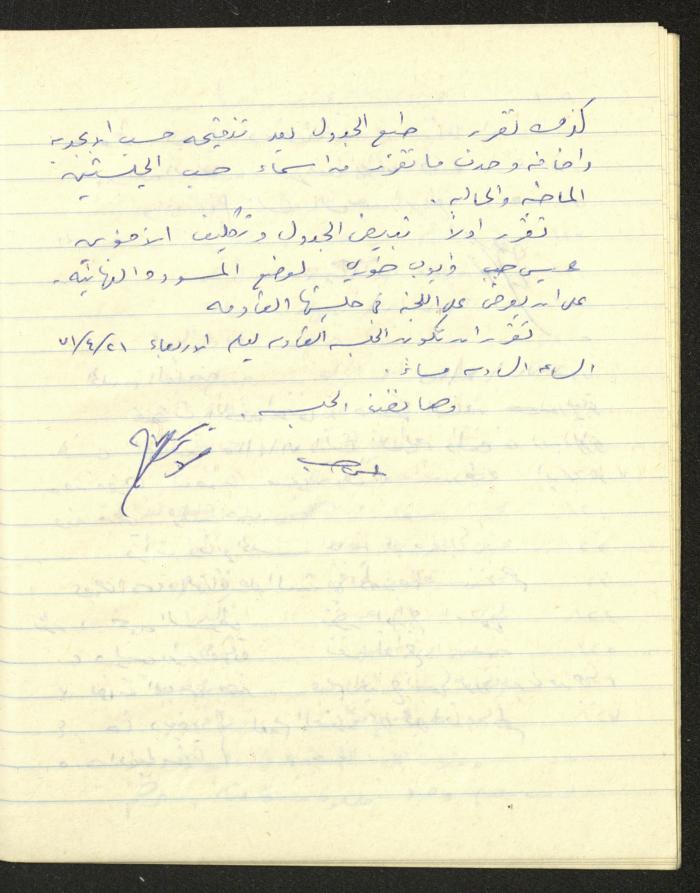 كذلك تقرر طبع الجدول بعد تنقيحه حسب الابجدية
واضافة وحذف ما تقرر من اسماء حسب الجلستين
الماضية والحالية .
تقرر اولاً تبييض الجدول وتكليف الاخوين
عيسى حبيب وايوب خوري لوضع المسودة النهائية .
على ان يعرض على اللجنة في جلستها القادمة
تقرر ان تكون الجلسة القادمة يوم الاربعاء ٧١/٤/٢١
الساعة السادسة مساءً .
وهنا رفعت الجلسة .